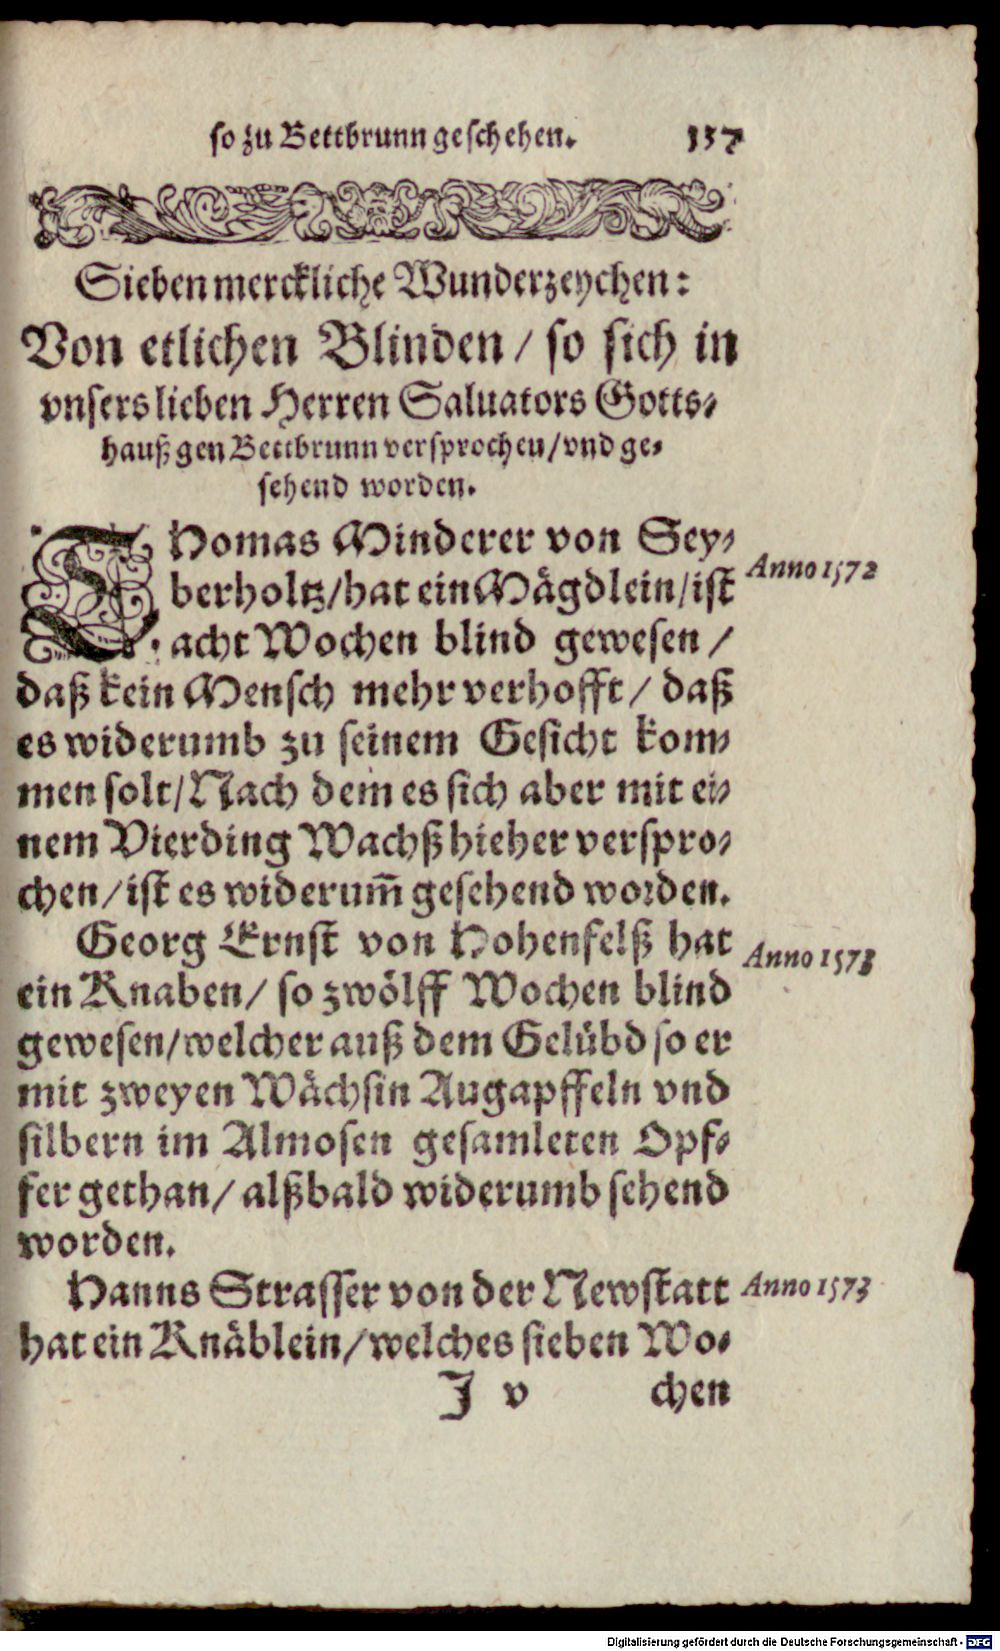 so zu Bettbrunn geschehen. 137
Sieben merckliche Wunderzeychen:
Von etlichen Blinden / so sich in
vnsers lieben Herren Saluators Gotts-
hauß gen Bettbrunn versprochen / vnd ge-
sehend worden.
THomas Minderer von Sey-
berholtz / hat ein Mägdlein / ist
acht Wochen blind gewesen /
daß kein Mensch mehr verhofft / daß
es widerumb zu seinem Gesicht kom-
men solt / Nach dem es sich aber mit ei-
nem Vierding Wachß hieher verspro-
chen / ist es widerum̄ gesehend worden.
Anno 1572
Georg Ernst von Hohenfelß hat
ein Knaben / so zwölff Wochen blind
gewesen / welcher auß dem Gelübd so er
mit zweyen Wächsin Augapffeln vnd
silbern im Almosen gesamleten Opf-
fer gethan / alßbald widerumb sehend
worden.
Anno 1573
Hanns Strasser von der Newstatt
hat ein Knäblein / welches sieben Wo-
Anno 1573
J v chen
Digitalisierung gefördert durch die Deutsche Forschungsgemeinschaft - DFG